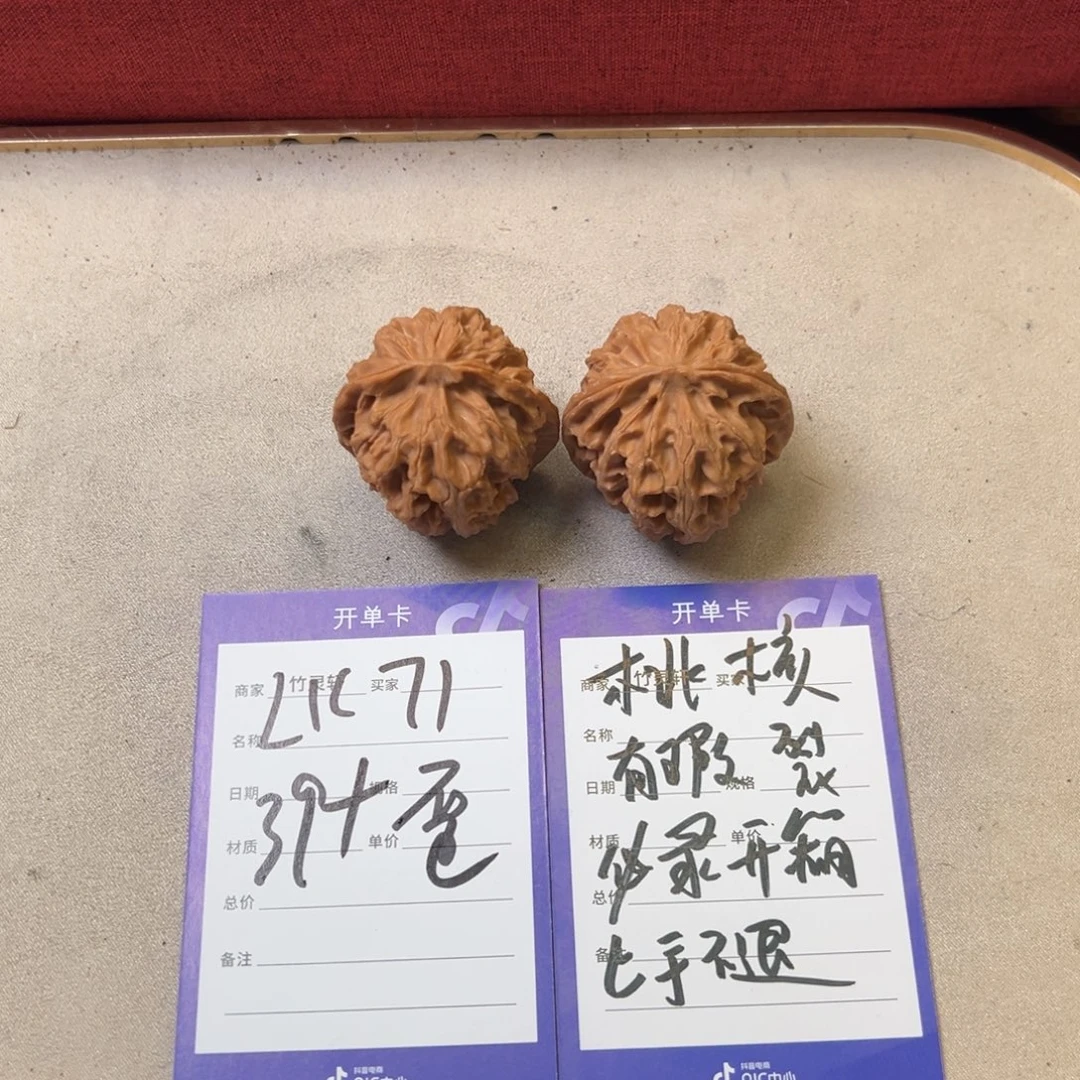 开单卡
商家 竹灵轩 买家
名称
日期 规格
材质 单价
总价
备注
71
394 歪
抖音电商
QIC中心
开单卡
商家 竹灵轩 买家
名称
日期 规格
材质 单价
总价
备注
桃核
有瑕 裂
必录开箱
上手不退
抖音电商
QIC中心